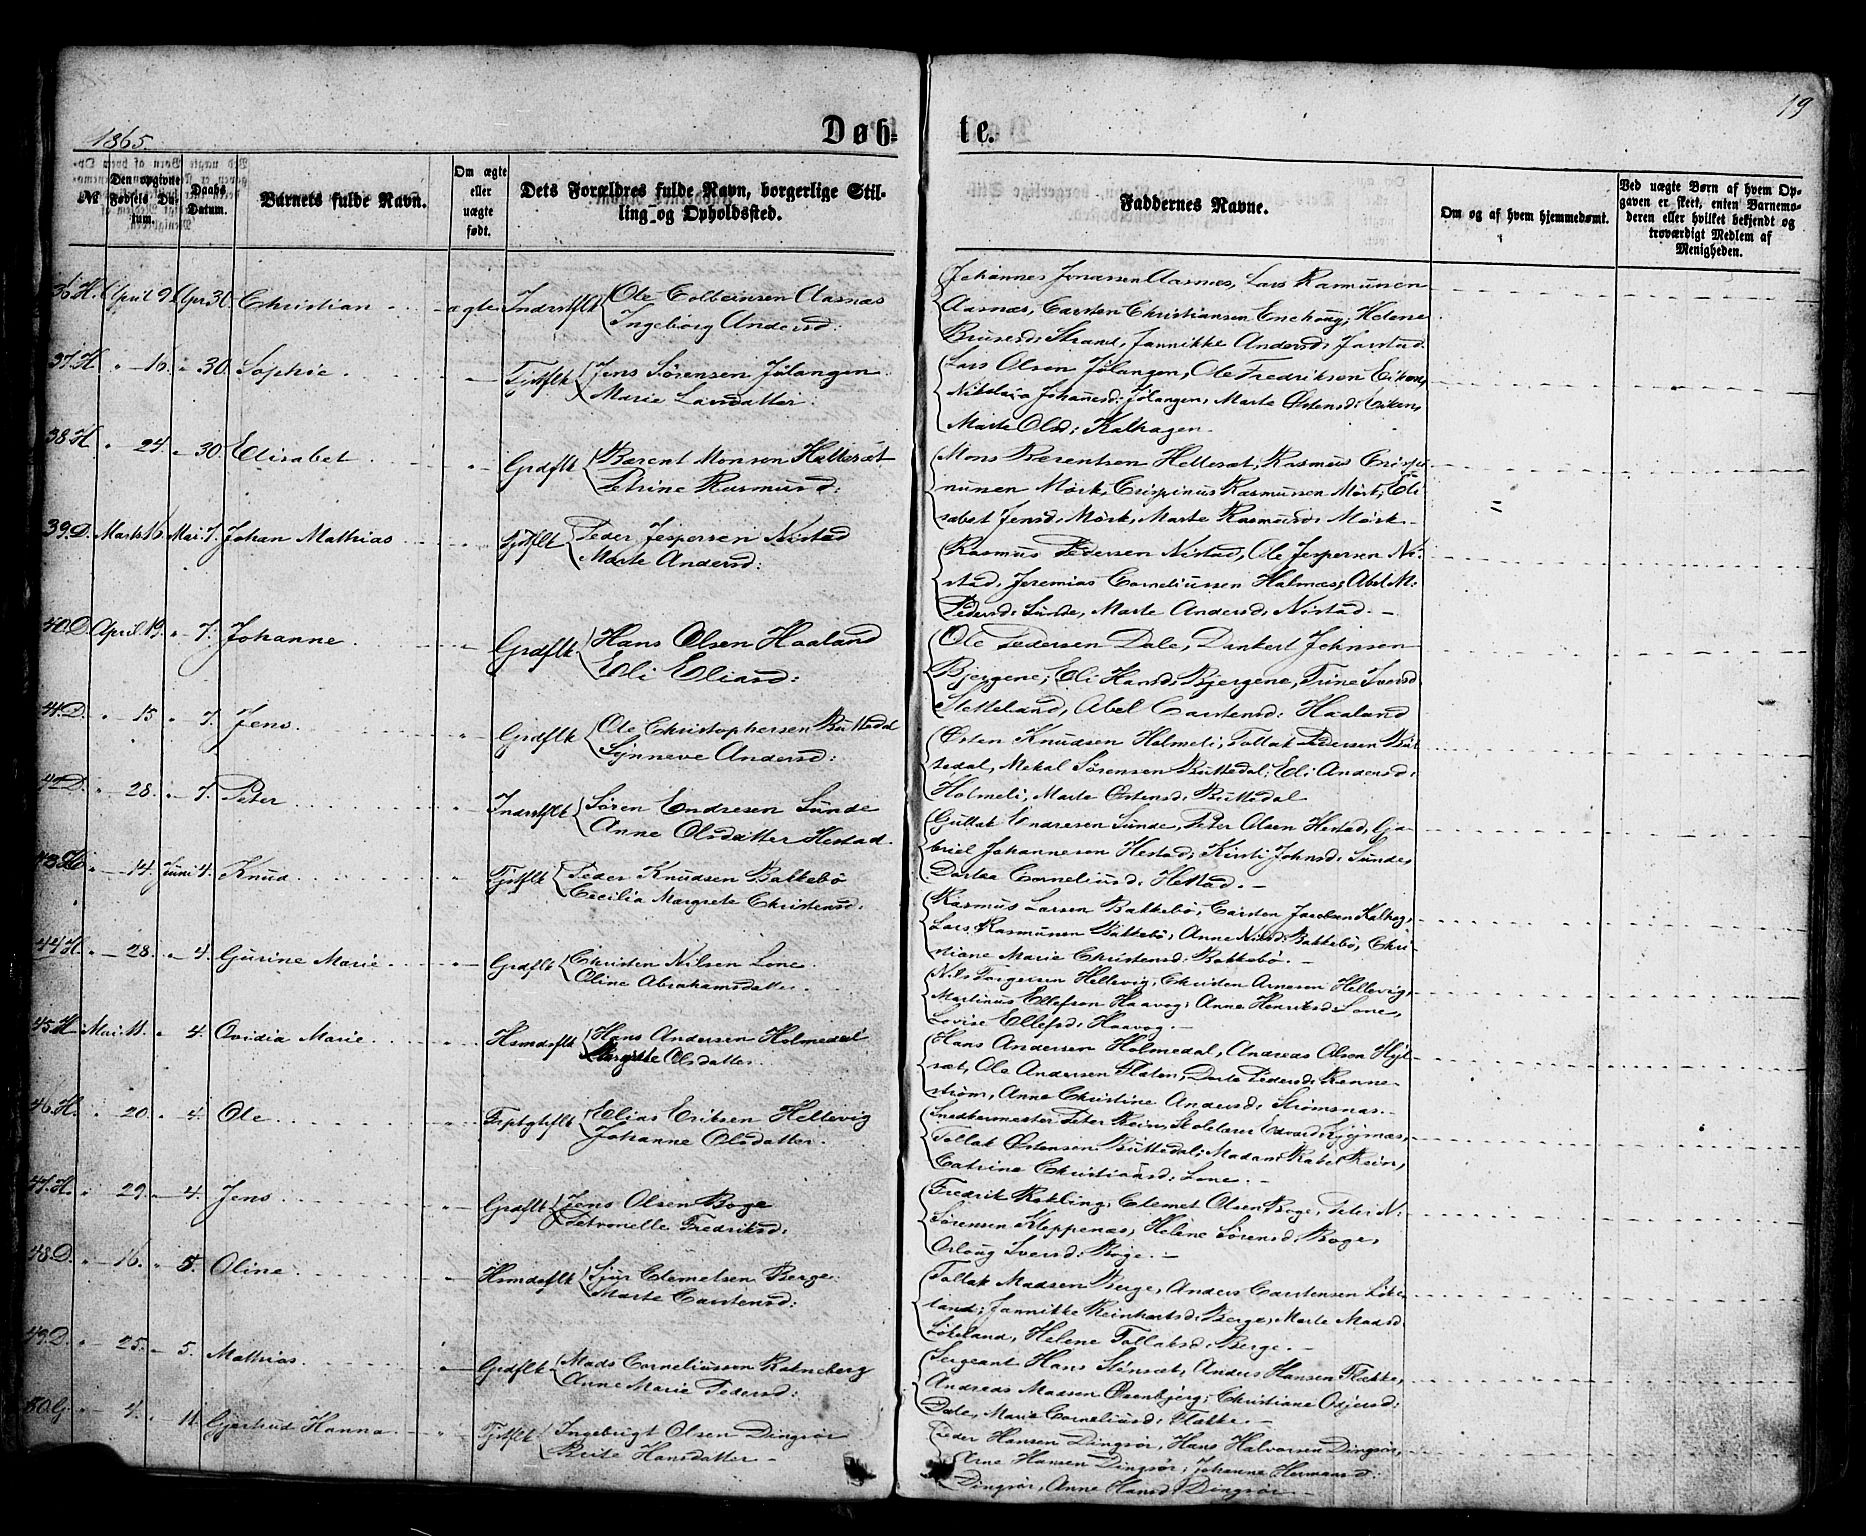 1865.
Døb-
te.
19
№
Den opgivne Fødsels Datum.
Daabs Datum.
Barnets fulde Navn.
Om ægte eller uægte født.
Dets Forældres fulde Navn, borgerlige Stilling og Opholdssted.
Faddernes Navne.
Om og af hvem hjemmedøbt.
Ved uægte Børn af hvem Opgaven er skeet, enten Barnemoderen eller hvilket bekjendt og troværdigt Medlem af Menigheden.
36 H. April 9. Apr 30. Christian ægte Indrstflk Ole Colbeinsen Aasnæs
Ingeborg Andersd:
Johannes Jonassen Aasnæs, Lars Rasmusen
Aasnæs, Carsten Christiansen Enehoug, Helene
Brusersd: Strand, Jannikke Andersd: Jarstad
37. H. " 16. " 30. Sophie " Tjstflk Jens Sørensen Jölangen
Marie Larsdatter.
Lars Olsen Jölangen, Ole Fredriksen Eiken,
Nikolaia Johannesd: Jölangen, Marte Østensd: Eiken,
Marte Olsd: Kalhagen.
38. H. " 24. " 30. Elisabet " Grdflk Bærent Monsen Hellesæt
Petrine Rasmusd:
Mons Bærentsen Hellesæt, Rasmus Crispi-
nusen Mörk, Crispinus Rasmussen Mörk, Eli-
sabet Jensd: Mörk, Marte Rasmusd: Mörk
39. D. Marts 16. Mai 7. Johan Mathias " Tjstflk Peder Jespersen Nistad
Marte Andersd:
Rasmus Pedersen Nistad, Ole Jespersen Ni-
stad, Jeremias Corneliussen Halmøs; Abel M.
Pedersd: Sunde, Marte Andersd: Nistad.
40. D. April 19. " 7. Johanne " Grdflk Hans Olsen Haaland
Eli Eliasd:
Ole Pedersen Dale, Dankert Johnsen
Bjergene, Eli Hansd: Bjergene, Trine Iversd
Stetteland, Abel Carstensd: Haaland
41. D. " 15 " 7. Jens " Grdflk Ole Christophersen Buttedal
Synneve Andersd:
Østen Knudsen Holmeli, Tollak Pedersen But-
tedal, Mekal Sørensen Buttedal, Eli Andersd:
Holmeli, Marte Østensd: Buttedal
42 D. " 28. " 7. Peter " Indrstflk Søren Endresen Sunde
Anne Olsdatter Hestad.
Gullak Endresen Sunde, Peter Olsen Hestad, Ga-
briel Johannesen Hestad, Kirsti Johnsd: Sunde,
Dortea Corneliusd: Hestad.
43. H. " 14. Juni 4. Knud " Tjstflk Peder Knudsen Bakkebö
Cecilia Margrete Christensd.
Rasmus Larsen Bakkebö, Carsten Jacobsen Kalhag,
Lars Rasmusen Bakkebö, Anne Nilsd: Bakkebö, Chri-
stiane Marie Christensd: Bakkebö.
44 H. " 28. " 4. Gurine Marie " Grdflk Christen Nilsen Lone
Oline Abrahamsdatter.
Nils Torgersen Hellevig, Christen Arnesen Hellevig,
Martinus Ellefsen Haavog, Anne Henriksd: Lone,
Lovise Ellefsd: Haavog.
45. H. Mai 11. " 4. Ovidia Marie " Hsmdsflk Hans Andersen Holmedal
Margrethe Olsdatter.
Hans Andersen Holmedal, Andreas Olsen Hyl-
sæt, Ole Andersen Flaten, Dorte Pedersd: Renne-
strøm, Anne Christine Andersd: Strømsnæs.
46. H. " 20. " 4. Ole " Frptgtflk Elias Eriksen Hellevig
Johanne Olsdatter.
Snedkermester Peter Rein, Skolelærer Edvard Lygnæs,
Tollak Østensen Buttedal, Madam Rabel Rein,
Catrine Christiansd: Lone.
47. H. " 29. " 4. Jens " Grdflk Jens Olsen Boge
Petronelle Fredriksd:
Fredrik Rökling, Clemet Olsen Boge, Peter N.
Sørensen Kleppenæs, Helene Sørensd: Boge,
Orloug Iversd: Boge.
48. D. " 16. " 5. Oline " Hsmdsflk Sjur Clemetsen Berge
Marte Carstensd:
Tollak Madsen Berge, Anders Carstensen Løke-
land, Jannikke Reinhartsd: Berge, Marte Madsd
Løkeland, Helene Tollaksd: Berge.
49. D. " 25. " 5. Mathias " Grdflk Mads Corneliussen Ratneberg
Anne Marie Pedersd:
Sergeant Hans Stensæt, Anders Hansen Flække,
Andreas Madsen Osenbjerg, Christiane Asjersd:
Dale, Marie Corneliusd: Flække.
50. G. " 4. " 11. Gjertrud Hanna " Tjstflk Ingebrigt Olsen Dingsør
Brite Hansdatter
Peder Hansen Dingsør, Hans Halvorsen Dingsør,
Arne Hansen Dingsør, Johanne Hermansd:
Dingsør, Anne Hansd: Dingsør